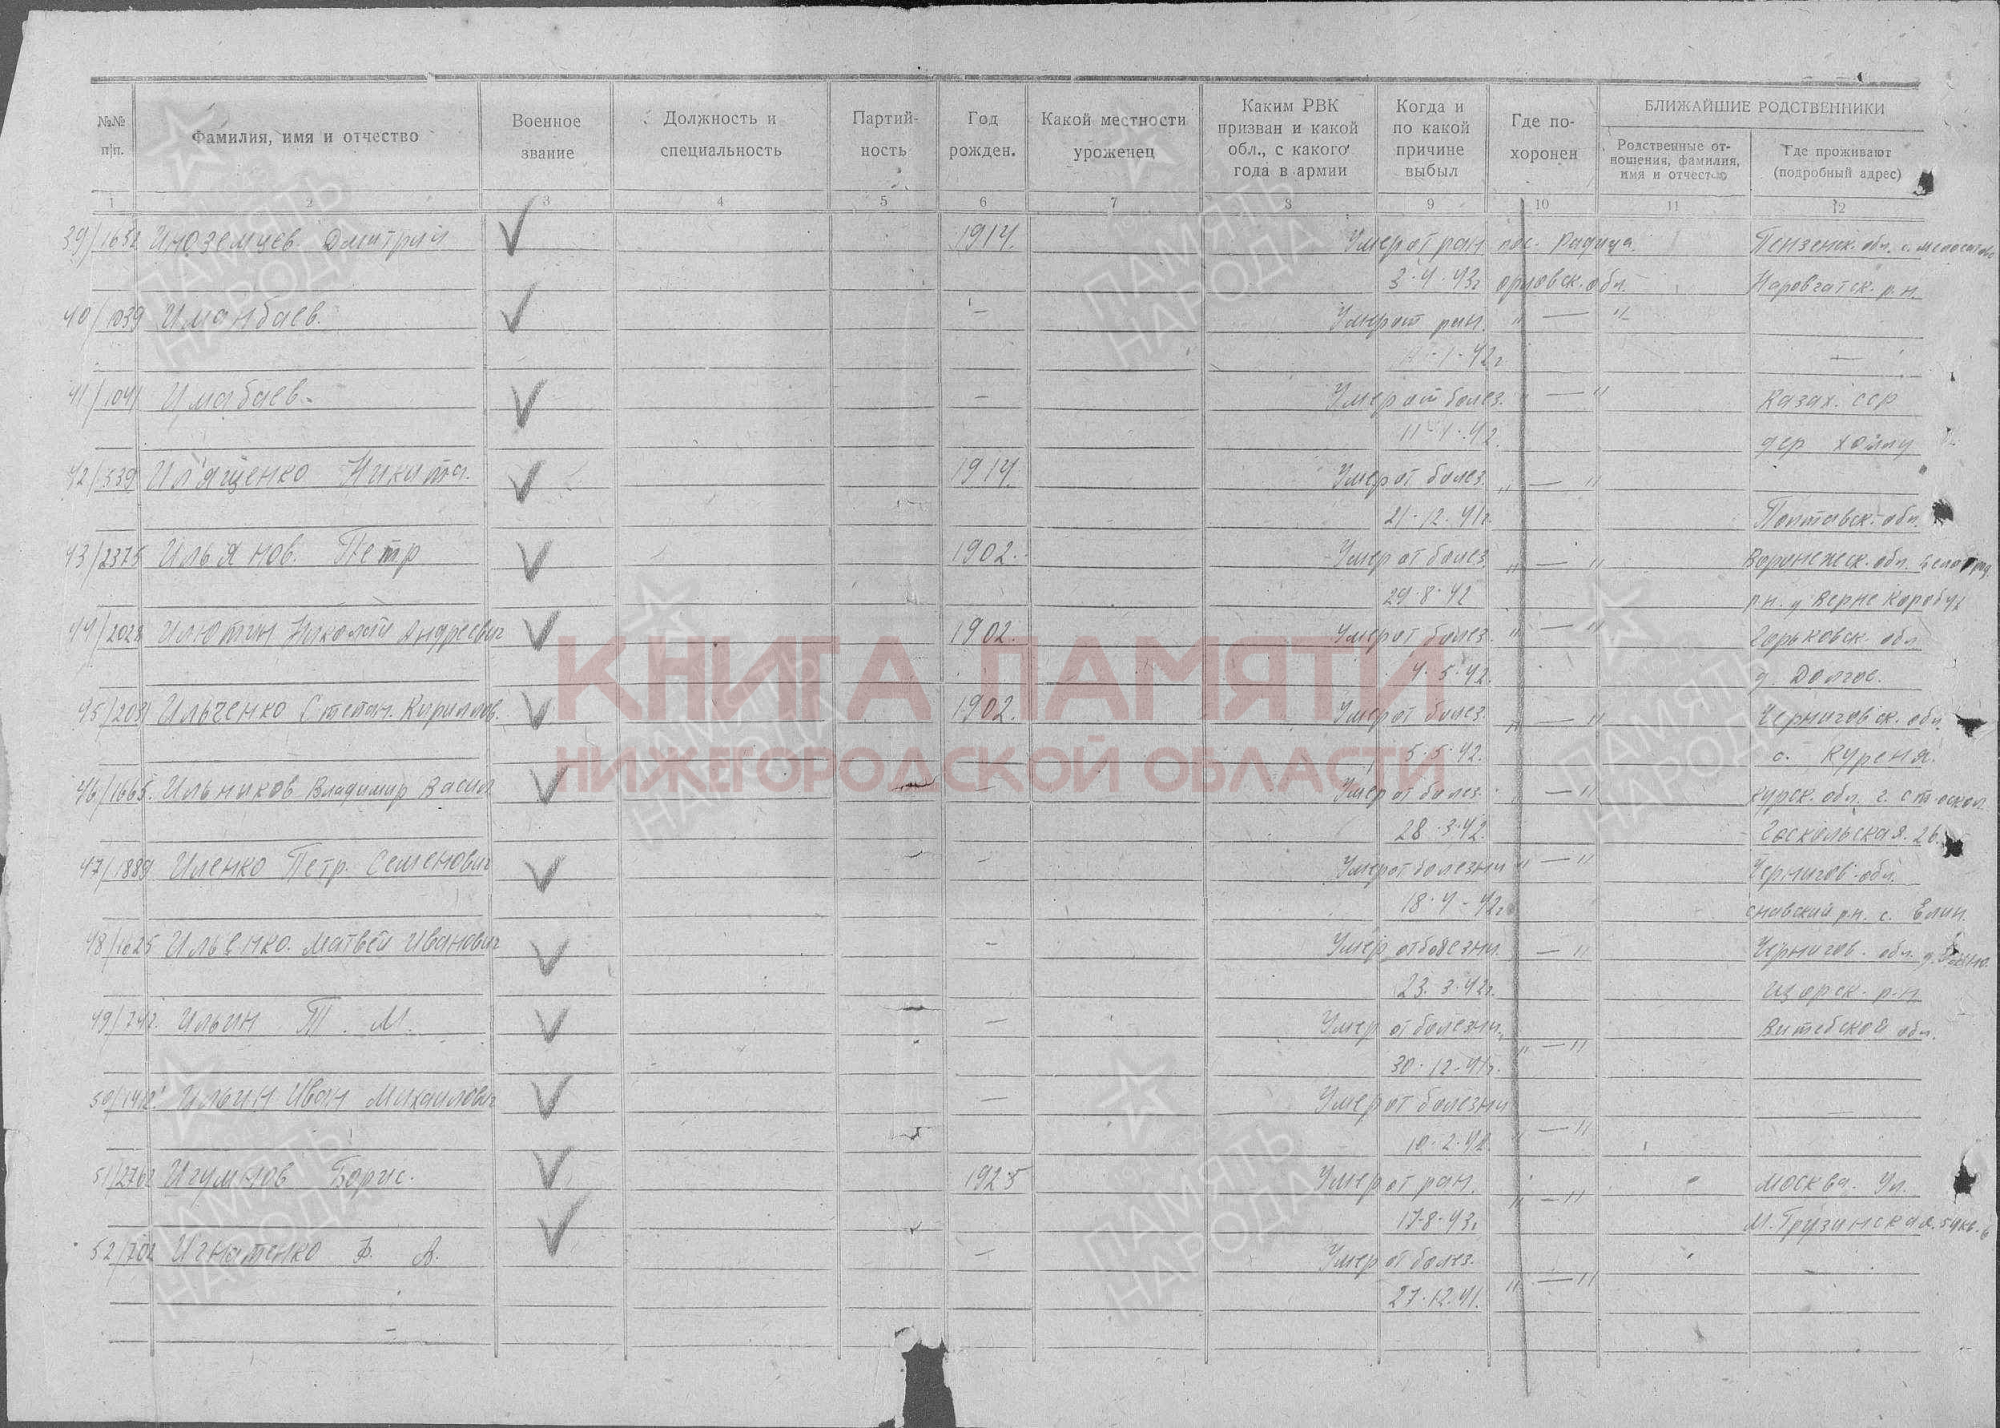 №№ п/п.
Фамилия, имя и отчество
Военное звание
Должность и специальность
Партий-ность
Год рожден.
Какой местности уроженец
Каким РВК призван и какой обл., с какого года в армии
Когда и по какой причине выбыл
Где по-хоронен
БЛИЖАЙШИЕ РОДСТВЕННИКИ
Родственные от-ношения, фамилия, имя и отчество
Где проживают (подробный адрес)
1 2 3 4 5 6 7 8 9 10 11 12
39/1652 Иноземцев Дмитрий 1914. Умер от ран пос. Радица Пензенск. обл. с.
3.4.43г орловск. обл. Наровчатск. р.н.
40/1039 Иманбаев. — Умер от ран. " — "
11.1.42г —
41/1041 Имабаев. — Умер от болез. " — " Казах. сср
11.1.42. дер
42/539 Ильященко Никита. 1914. Умер от болез. " — "
21.12.41г. Полтавск. обл.
43/2375 Ильянов. Петр 1902. Умер от болез. " — " Воронежск. обл.
29.8.42 р.н. д
44/2028 Илютин Николай Андреевич 1902. Умер от болез. " — " Горьковск. обл
4.5.42. д Долгое.
45/2031 Ильченко Степан. Кириллов. 1902. Умер от болез. " — " Черниговск. обл.
5.5.42. с. Куреня.
46/1665. Ильников Владимир Васил — Умер от болез. " — " курск. обл. г. ст оскол
28.3.42. 26.
47/1889 Иленко Петр. Семенович — Умер от болезни " — " Чернигов. обл.
18.4.42г р.н. с.
48/1625 Ильенко. Матвей Иванович — Умер от болезни. " — " Чернигов. обл. д.
23.3.42г. р-н
49/742. Ильин Т. М. — Умер от болезни. " — " Витебской обл.
30.12.41г.
50/1412 Ильин Иван Михайлович — Умер от болезни —
10.2.42. " — "
51/2762 Игумнов Борис. 1925 Умер от ран. москва. Ул.
17.8.43г " — " М. Грузинская. 54 кв. 6
52/702 Игнатенко Ф. А. — Умер от болез.
27.12.41. " — "
КНИГА ПАМЯТИ
НИЖЕГОРОДСКОЙ ОБЛАСТИ
ПАМЯТЬ НАРОДА
ПАМЯТЬ НАРОДА
ПАМЯТЬ НАРОДА
ПАМЯТЬ НАРОДА
ПАМЯТЬ НАРОДА
ПАМЯТЬ НАРОДА